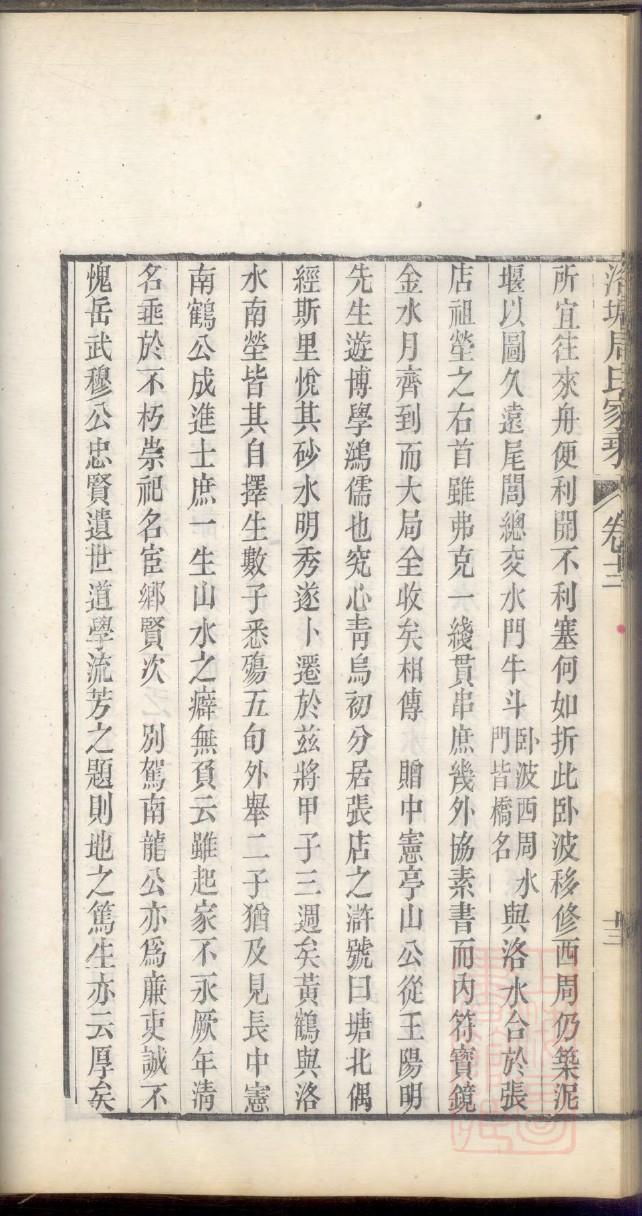 洛塘周氏家乘 卷十三 十三
所宜往來舟便利開不利塞何如折此卧波移修西周仍築泥
堰以圖久遠尾閭總交水門牛斗卧波西周水門皆橋名與洛水合於張
店祖塋之右首雖弗克一綫貫串庶幾外協素書而內符寶鏡
金水月齊到而大局全收矣相傳 贈中憲亭山公從王陽明
先生遊博學鴻儒也究心靑烏初分居張店之滸號曰塘北偶
經斯里悅其砂水明秀遂卜遷於茲將甲子三週矣黃鶴與洛
水南塋皆其自擇生數子悉殤五旬外舉二子猶及見長中憲
南鶴公成進士庶一生山水之癖無負云雖起家不永厥年淸
名垂於不朽崇祀名宦鄕賢次 別駕南龍公亦爲廉吏誠不
愧岳武穆公忠賢遺世道學流芳之題則地之篤生亦云厚矣